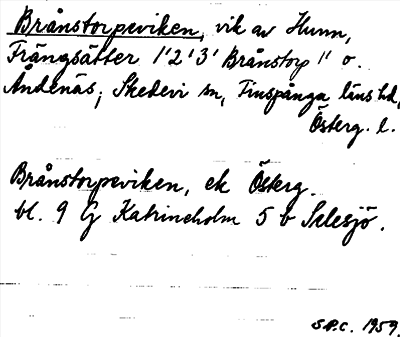 Brånstorpeviken, vik av Hunn,
Frängsätter 1'2'3' Brånstorp 1" o.
Andenäs; Skedevi sn, Finspånga läns hd,
Österg. l.
Brånstorpeviken, ek Österg.
bl. 9 G Katrineholm 5 b Selesjö.
S.P.C. 1959.